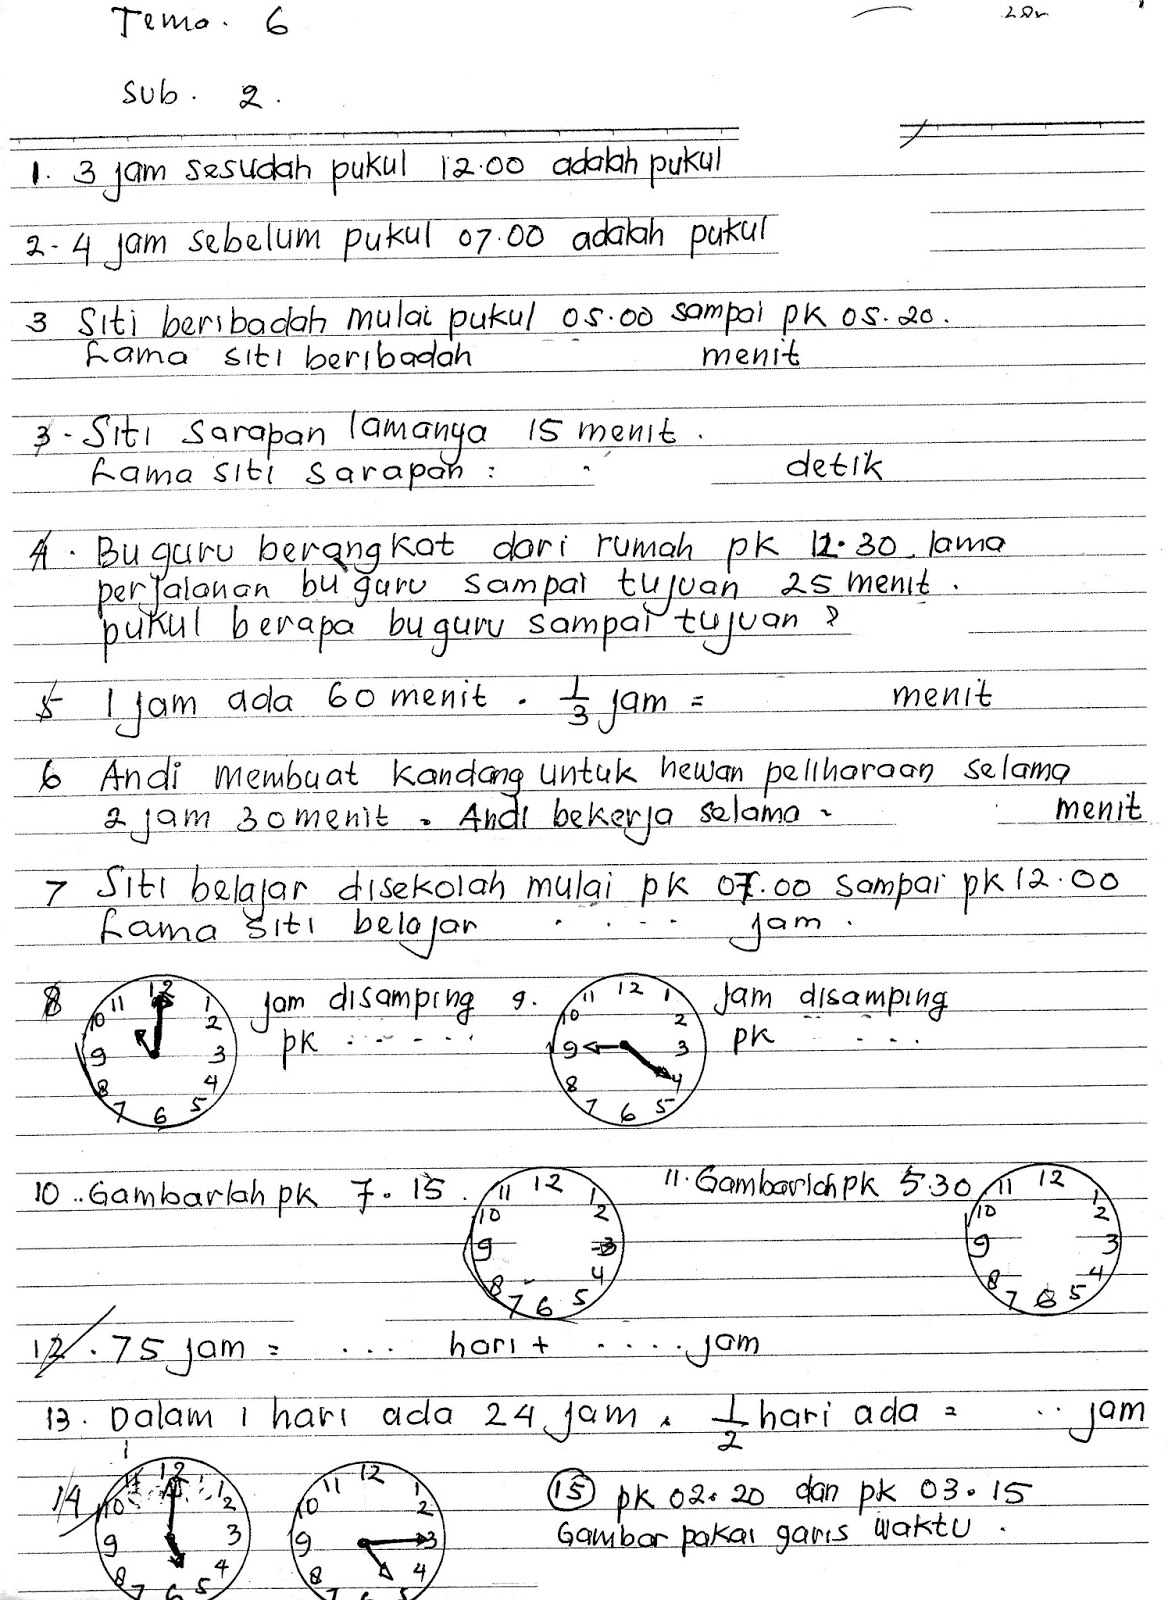 Tema. 6
Sub. 2.
1. 3 jam sesudah pukul 12.00 adalah pukul
2. 4 jam sebelum pukul 07.00 adalah pukul
3 Siti beribadah mulai pukul 05.00 sampai pk 05.20.
Lama siti beribadah menit
3. Siti sarapan lamanya 15 menit.
Lama siti sarapan : detik
4. Bu guru berangkat dari rumah pk 12.30. lama
perjalanan bu guru sampai tujuan 25 menit.
pukul berapa bu guru sampai tujuan ?
5 1 jam ada 60 menit. 1/3 jam = menit
6 Andi membuat kandang untuk hewan peliharaan selama
2 jam 30 menit. Andi bekerja selama. menit
7 Siti belajar disekolah mulai pk 07.00 sampai pk 12.00
Lama siti belajar . . . . . jam.
8 12 1 2 3 4 5 6 7 8 9 10 11 jam disamping
pk . . . . . .
9. 12 1 2 3 4 5 6 7 8 9 10 11 jam disamping
pk . . . . .
10.. Gambarlah pk 7.15. 12 1 2 3 4 5 6 7 8 9 10 11
11. Gambarlah pk 5.30 12 1 2 3 4 5 6 7 8 9 10 11
12. 75 jam = . . . hari + . . . . . jam
13. Dalam 1 hari ada 24 jam. 1/2 hari ada = . . jam
14 12 1 2 3 4 5 6 7 8 9 10 11
12 1 2 3 4 5 6 7 8 9 10 11
15 pk 02.20 dan pk 03.15
Gambar pakai garis waktu.